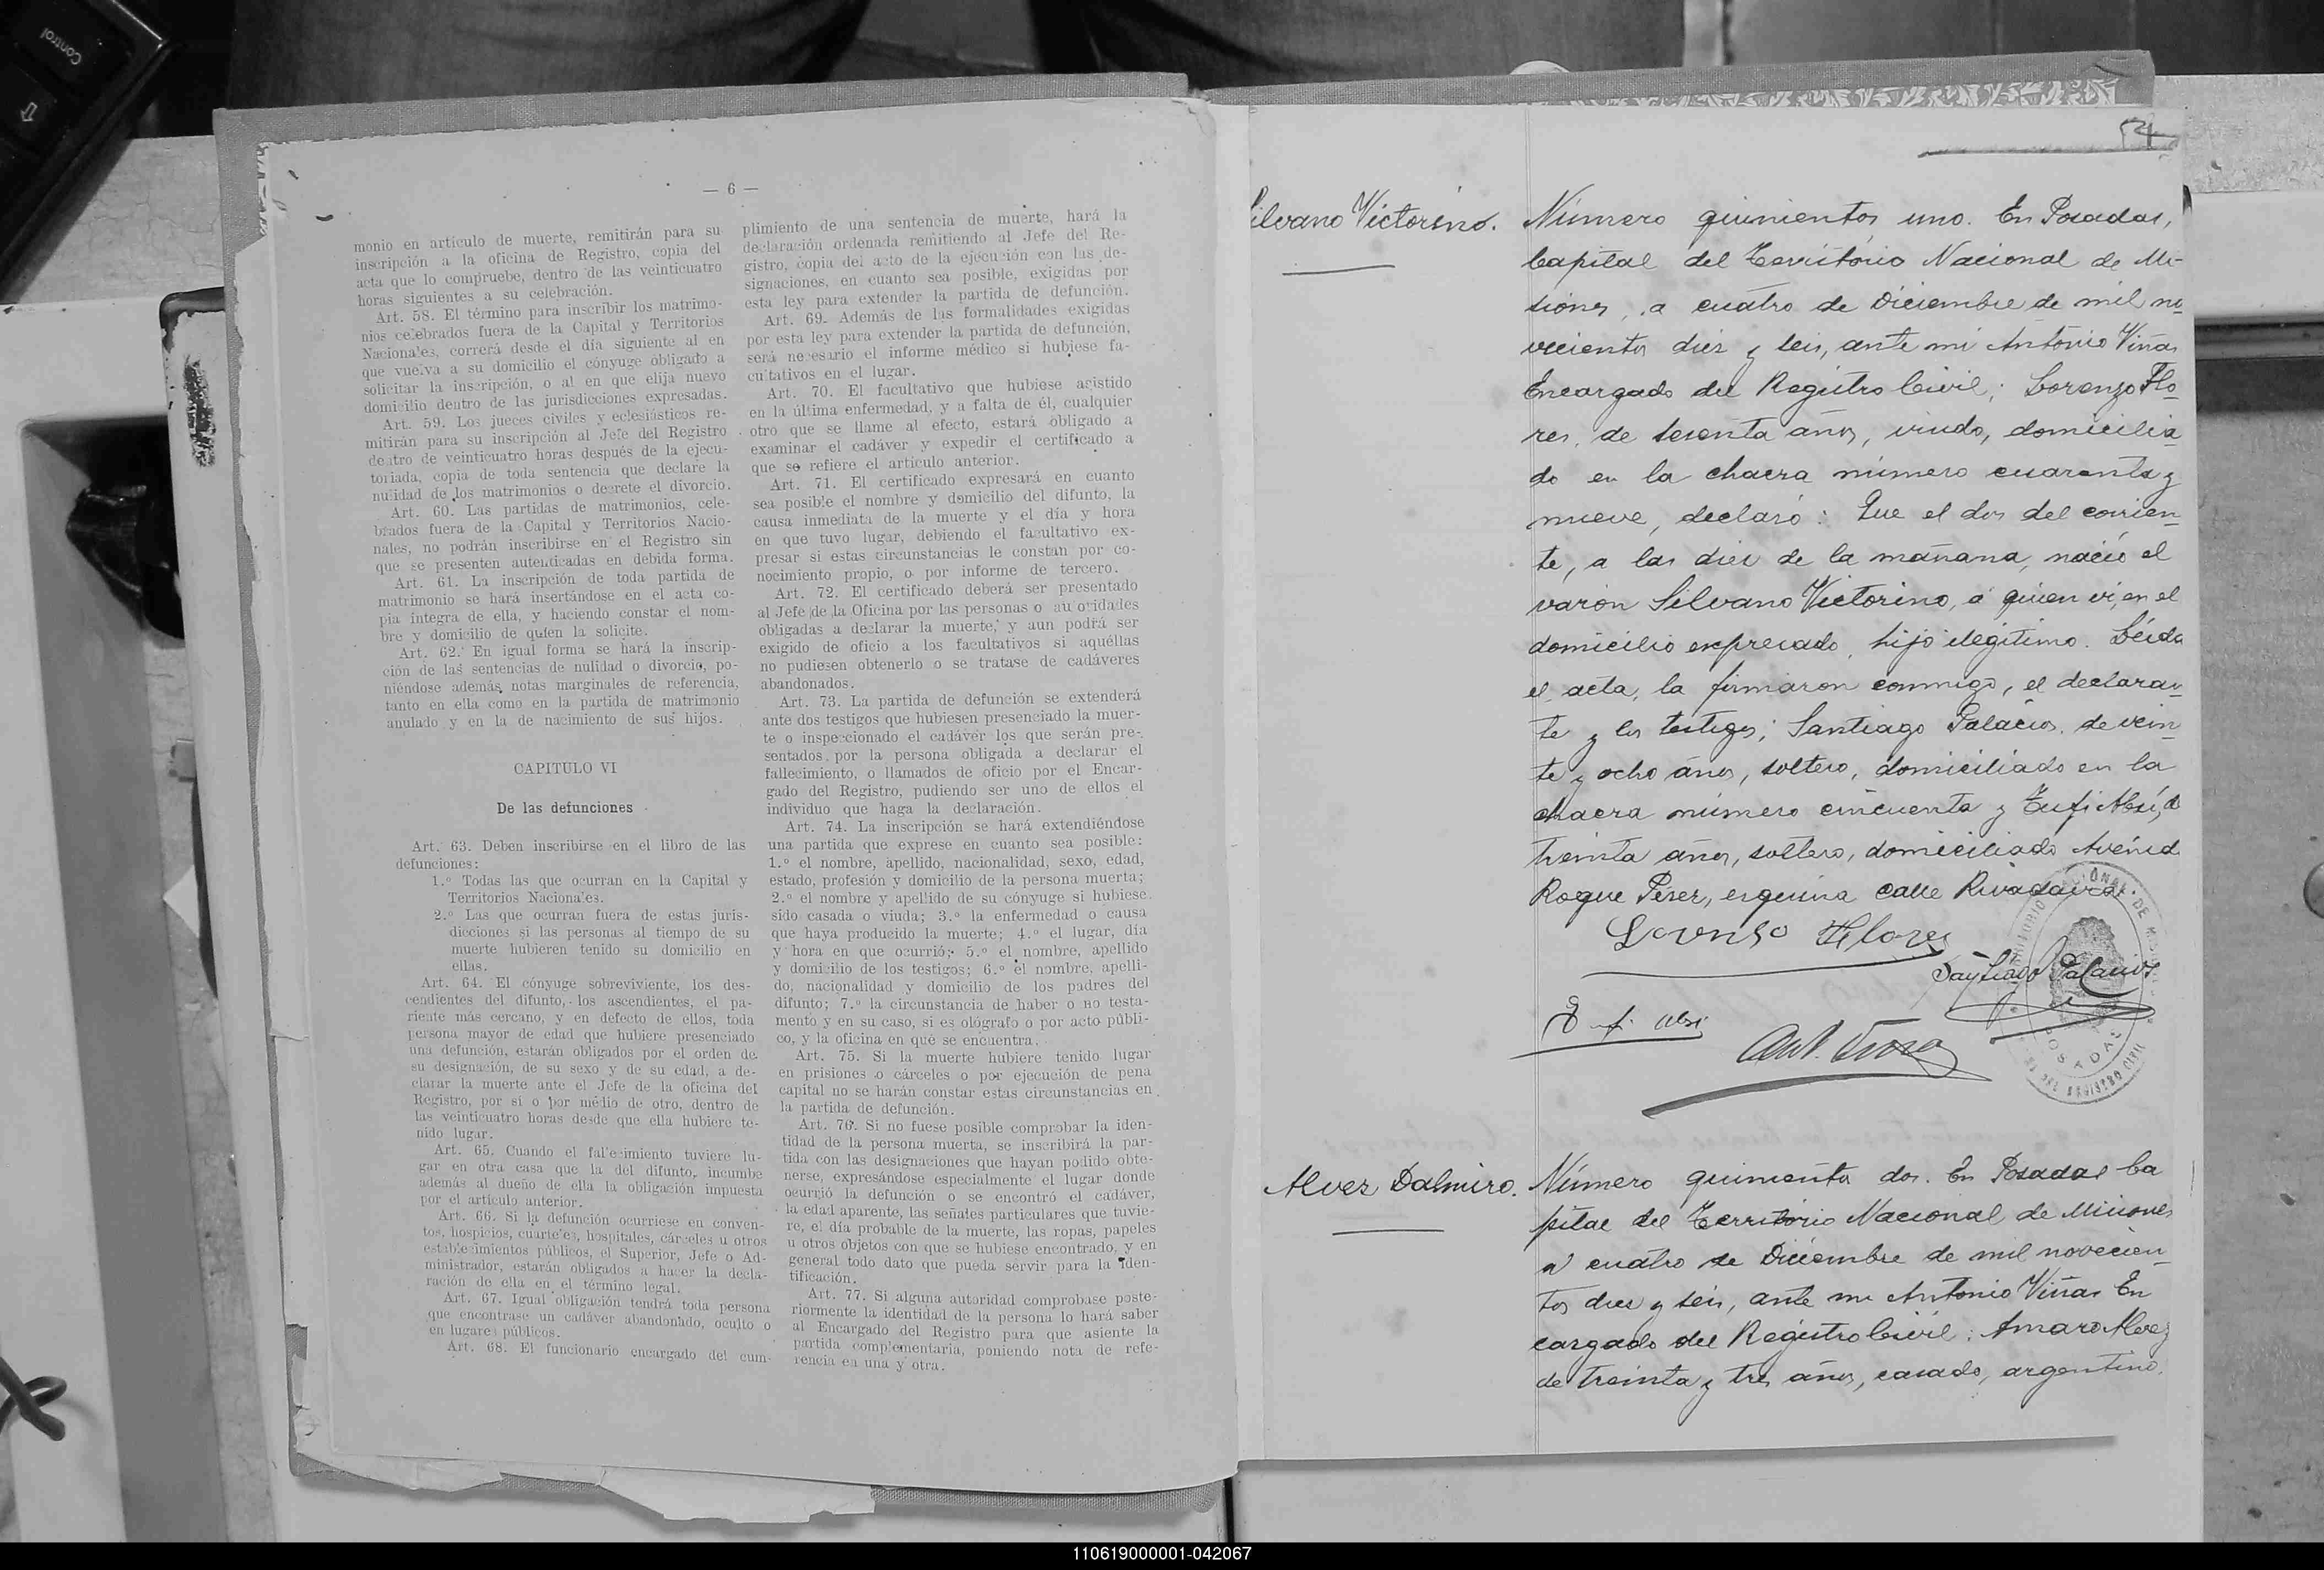 Control
— 6 —
monio en artículo de muerte, remitirán para su
inscripción a la oficina de Registro, copia del
acta que lo compruebe, dentro de las veinticuatro
horas siguientes a su celebración.
Art. 58. El término para inscribir los matrimo-
nios celebrados fuera de la Capital y Territorios
Nacionales, correrá desde el día siguiente al en
que vuelva a su domicilio el cónyuge obligado a
solicitar la inscripción, o al en que elija nuevo
domicilio dentro de las jurisdicciones expresadas.
Art. 59. Los jueces civiles y eclesiásticos re-
mitirán para su inscripción al Jefe del Registro
dentro de veinticuatro horas después de la ejecu-
toriada, copia de toda sentencia que declare la
nulidad de los matrimonios o decrete el divorcio.
Art. 60. Las partidas de matrimonios, cele-
brados fuera de la Capital y Territorios Nacio-
nales, no podrán inscribirse en el Registro sin
que se presenten autenticadas en debida forma.
Art. 61. La inscripción de toda partida de
matrimonio se hará insertándose en el acta co-
pia íntegra de ella, y haciendo constar el nom-
bre y domicilio de quien la solicite.
Art. 62. En igual forma se hará la inscrip-
ción de las sentencias de nulidad o divorcio, po-
niéndose además, notas marginales de referencia,
tanto en ella como en la partida de matrimonio
anulado y en la de nacimiento de sus hijos.
CAPITULO VI
De las defunciones
Art. 63. Deben inscribirse en el libro de las
defunciones:
1.º Todas las que ocurran en la Capital y
Territorios Nacionales.
2.º Las que ocurran fuera de estas juris-
dicciones si las personas al tiempo de su
muerte hubieren tenido su domicilio en
ellas.
Art. 64. El cónyuge sobreviviente, los des-
cendientes del difunto, los ascendientes, el pa-
riente más cercano, y en defecto de ellos, toda
persona mayor de edad que hubiere presenciado
una defunción, estarán obligados por el orden de
su designación, de su sexo y de su edad, a de-
clarar la muerte ante el Jefe de la oficina del
Registro, por sí o por médio de otro, dentro de
las veinticuatro horas desde que ella hubiere te-
nido lugar.
Art. 65. Cuando el fallecimiento tuviere lu-
gar en otra casa que la del difunto, incumbe
además al dueño de ella la obligación impuesta
por el artículo anterior.
Art. 66. Si la defunción ocurriese en conven-
tos, hospicios, cuarteles, hospitales, cárceles u otros
establecimientos públicos, el Superior, Jefe o Ad-
ministrador, estarán obligados a hacer la decla-
ración de ella en el término legal.
Art. 67. Igual obligación tendrá toda persona
que encontrase un cadáver abandonado, oculto o
en lugares públicos.
Art. 68. El funcionario encargado del cum-
plimiento de una sentencia de muerte, hará la
declaración ordenada remitiendo al Jefe del Re-
gistro, copia del acto de la ejecución con las de-
signaciones, en cuanto sea posible, exigidas por
esta ley para extender la partida de defunción.
Art. 69. Además de las formalidades exigidas
por esta ley para extender la partida de defunción,
será necesario el informe médico si hubiese fa-
cultativos en el lugar.
Art. 70. El facultativo que hubiese asistido
en la última enfermedad, y a falta de él, cualquier
otro que se llame al efecto, estará obligado a
examinar el cadáver y expedir el certificado a
que se refiere el artículo anterior.
Art. 71. El certificado expresará en cuanto
sea posible el nombre y domicilio del difunto, la
causa inmediata de la muerte y el día y hora
en que tuvo lugar, debiendo el facultativo ex-
presar si estas circunstancias le constan por co-
nocimiento propio, o por informe de tercero.
Art. 72. El certificado deberá ser presentado
al Jefe de la Oficina por las personas o autoridades
obligadas a declarar la muerte, y aun podrá ser
exigido de oficio a los facultativos si aquéllas
no pudiesen obtenerlo o se tratase de cadáveres
abandonados.
Art. 73. La partida de defunción se extenderá
ante dos testigos que hubiesen presenciado la muer-
te o inspeccionado el cadáver los que serán pre-
sentados por la persona obligada a declarar el
fallecimiento, o llamados de oficio por el Encar-
gado del Registro, pudiendo ser uno de ellos el
individuo que haga la declaración.
Art. 74. La inscripción se hará extendiéndose
una partida que exprese en cuanto sea posible:
1.º el nombre, apellido, nacionalidad, sexo, edad,
estado, profesión y domicilio de la persona muerta;
2.º el nombre y apellido de su cónyuge si hubiese
sido casada o viuda; 3.º la enfermedad o causa
que haya producido la muerte; 4.º el lugar, día
y hora en que ocurrió; 5.º el nombre, apellido
y domicilio de los testigos; 6.º el nombre, apelli-
do, nacionalidad y domicilio de los padres del
difunto; 7.º la circunstancia de haber o no testa-
mento y en su caso, si es ológrafo o por acto públi-
co, y la oficina en que se encuentra.
Art. 75. Si la muerte hubiere tenido lugar
en prisiones o cárceles o por ejecución de pena
capital no se harán constar estas circunstancias en
la partida de defunción.
Art. 76. Si no fuese posible comprobar la iden-
tidad de la persona muerta, se inscribirá la par-
tida con las designaciones que hayan podido obte-
nerse, expresándose especialmente el lugar donde
ocurrió la defunción o se encontró el cadáver,
la edad aparente, las señales particulares que tuvie-
re, el día probable de la muerte, las ropas, papeles
u otros objetos con que se hubiese encontrado, y en
general todo dato que pueda servir para la iden-
tificación.
Art. 77. Si alguna autoridad comprobase poste-
riormente la identidad de la persona lo hará saber
al Encargado del Registro para que asiente la
partida complementaria, poniendo nota de refe-
rencia en una y otra.
51
Silvano Victorino.
Número quinientos uno. En Posadas,
Capital del Territorio Nacional de Mi-
siones, a cuatro de Diciembre de mil no-
vecientos diez y seis, ante mi Antonio Viñas
Encargado del Registro Civil; Lorenzo Flo-
res, de sesenta años, viudo, domicilia-
do en la chacra número cuarenta y
nueve, declaró: Que el dos del corrien-
te, a las diez de la mañana, nació el
varón Silvano Victorino, á quien ví, en el
domicilio expresado, hijo ilegítimo. Leída
el acta, la firmaron conmigo, el declaran-
te y los testigos; Santiago Palacios, de vein-
te y ocho años, soltero, domiciliado en la
chacra número cincuenta y Tufi Absí, d
treinta años, soltero, domiciliado Avenid
Roque Perez, esquina calle Rivadavia.
Lorenso Flores
Santiago Palacios
Tufi Absi
Ant. Viñas
TERRITORIO NACIONAL DE MISIONES
POSADAS
DEL REGISTRO CIVIL
Alvez Dalmiro.
Número quinientos dos. En Posadas Ca
pital del Territorio Nacional de Misiones
a cuatro de Diciembre de mil novecien-
tos diez y seis, ante mi Antonio Viñas En
cargado del Registro Civil: Amaro Alvez
de treinta y tres años, casado, argentino,
110619000001-042067